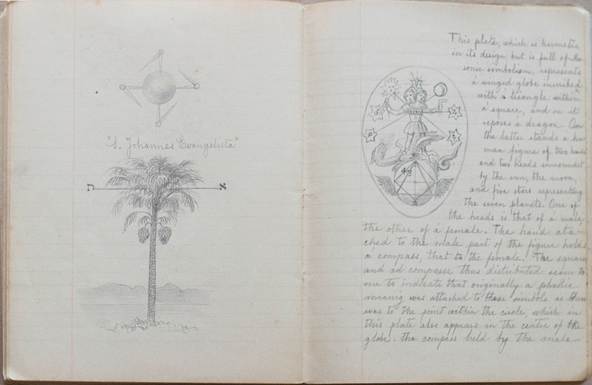 "S. Johannes Evangelista"
ת א
This plate, which is hermetic
in its design, but is full of Ma-
sonic symbolism, represents
a winged globe inscribed
with a triangle within
a square, and on it
reposes a dragon. On
the latter stands a hu
man figure of two hands
and two heads surrounded
by the sun, the moon,
and five stars representing
the seven planets. One of
the heads is that of a male,
the other of a female. The hand atta-
ched to the male part of the figure holds
a compass, that to the female, the square
and compass thus distributed seem to
me to indicate that originally a phallic
meaning was attached to these symbols as there
was to the point within the circle, which in
this plate also appears in the centre of the
globe. The compass held by the male